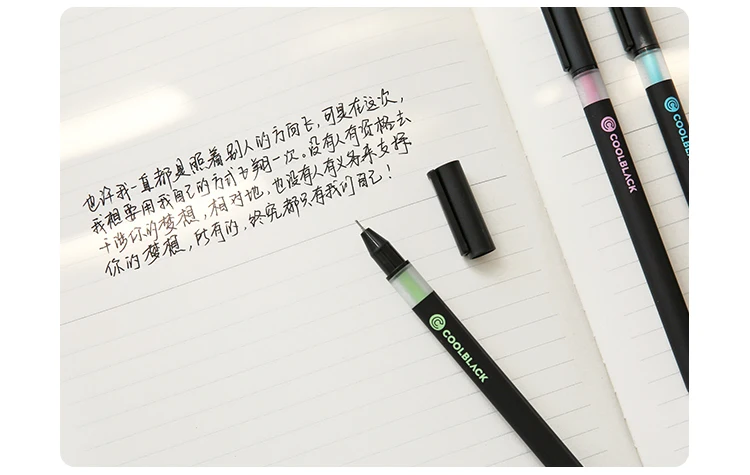 也许我一直都是照着别人的方向飞，可是在这次，
我想要用我自己的方式飞翔一次。没有人有资格去
干涉你的梦想，相对地，也没有人有义务来支撑
你的梦想，所有的，终究都只有我们自己！
COOLBLACK
COOLBLACK
COOLBLACK